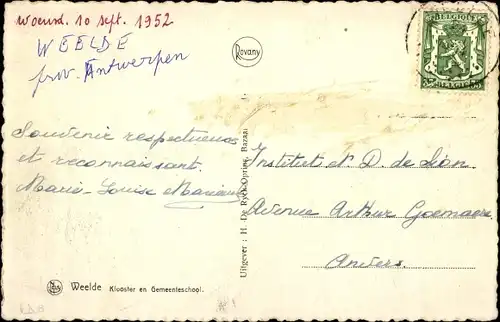 Woensd. 10 sept. 1952
WEELDE
prov. Antwerpen
Rovany
BELGIQUE
BELGIE
Souvenir respectueux
et reconnaissant.
Marie-Louise
Uitgever : H. De Ryck-Oprins, Bazar
Institut N. D. de Sion
Avenue Arthur Goemaere
Anvers.
Weelde Klooster en Gemeenteschool.